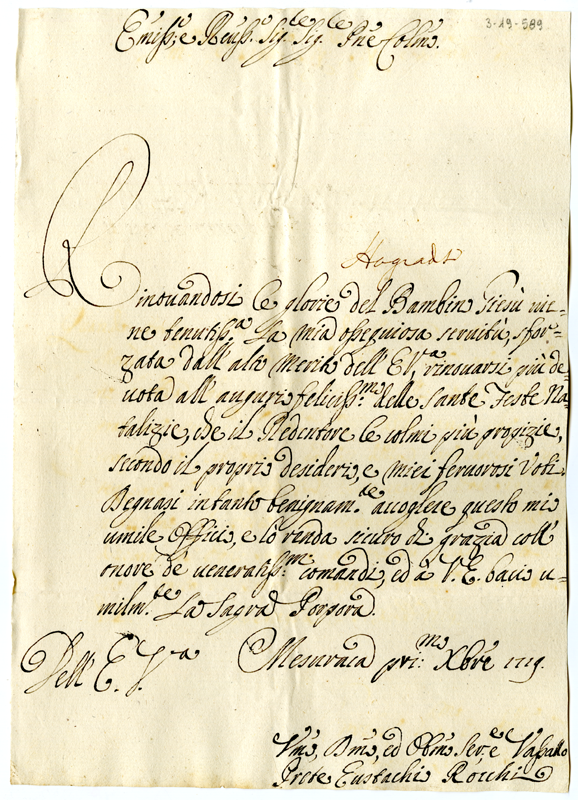 3-19-589
Emiss.º e Reuss.º Sig.re Sig.re Pne Colmo.
Hogradt
Rinouandosi le glorie del Bambin Giesù vie=
ne tenutiss.a La mia osseguiosa seruitù, sfor=
zata dall' alto Merito dell' E.V.a rinouarsi più de=
uota all' augurj feliciss.mi delle Sante Feste Na=
talizie, che il Redentore le colmi più propizie,
secondo il proprio desiderio, e miei feruorosi Voti.
Degnasi intanto benignam.te accogliere questo mio
umile Officio, e lo renda sicuro di grazia coll'
onore de ueneratiss.mi comandi, ed à V. E. bacio u=
milm.te La Sagra Porpora.
Dell' E. V.a Mesuraca pri:mo Xbre 1719.
Vmo, Dmo, ed Obmo Ser.e Vassallo
Prete Eustachio Rocchi